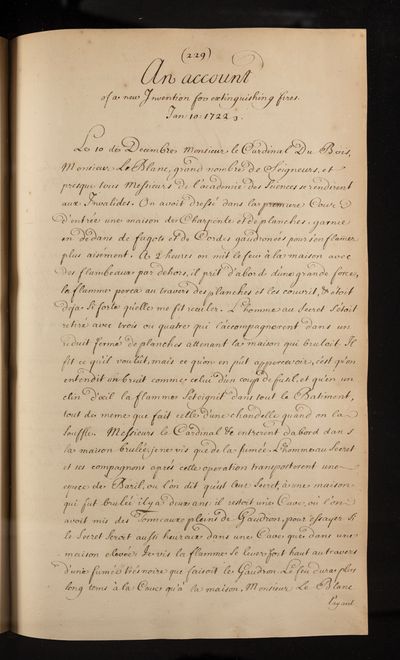 (229)
An account
of a new Invention for extinguishing fires.
Jan 10. 1722/3.
Le 10 de Decembre Monsieur le Cardinal Du Bois,
Monsieur Le Blanc, grand nombre de Seigneurs, et
presque tous Messieurs de l'academie des Siences se rendirent
aux Invalides. On avoit dressé dans la premiere Cour
D'entrée une maison de Charpente et de planches, garnie
en dedans de fagots et de Cordes gaudronées pour s'enflamer
plus aisement. A 2 heures on mit le feu à la maison avec
des flambeaux par dehors, il prit d'abord d'une grande force,
la flamme perça au travers des planches et les couvrit, etoit
deja si forte qu'elle me fit reculer. L'homme au Secret s'étoit
retiré avec trois ou quatre qui l'accompagnoient dans un
reduit fermé de planches attenant la maison qui bruloit. Il
fit ce qu'il voulut, mais ce qu'on en pût appercevoir, c'est qu'on
entendit un bruit comme celui d'un coup de fusil, et qu'en un
clin d'œil la flamme s'eteignit dans tout le Batiment,
tout de meme que fait celle d'une chandelle quand on la
souffle. Messieurs le Cardinal &c entrerent d'abord dans
la maison brulée, je ne vis que de la fumée. L'homme au Secret
et ses compagnons aprés cette operation transporterent une
espece de Baril, ou l'on dit qu'est leur Secret, à une maison
qui fut brulée il y a deux ans il restoit une Cave, où l'on
avoit mis des Tonneaux pleins de Gaudron, pour essayer si
le Secret seroit aussi heureux dans une Cave que dans une
maison elevée. Je vis la flamme se lever fort haut au travers
d'une fumée trés noire que faisoit le Gaudron. Le feu dura plus
long tems à la Cave qu'à la maison, Monsieur Le Blanc
l'ayant